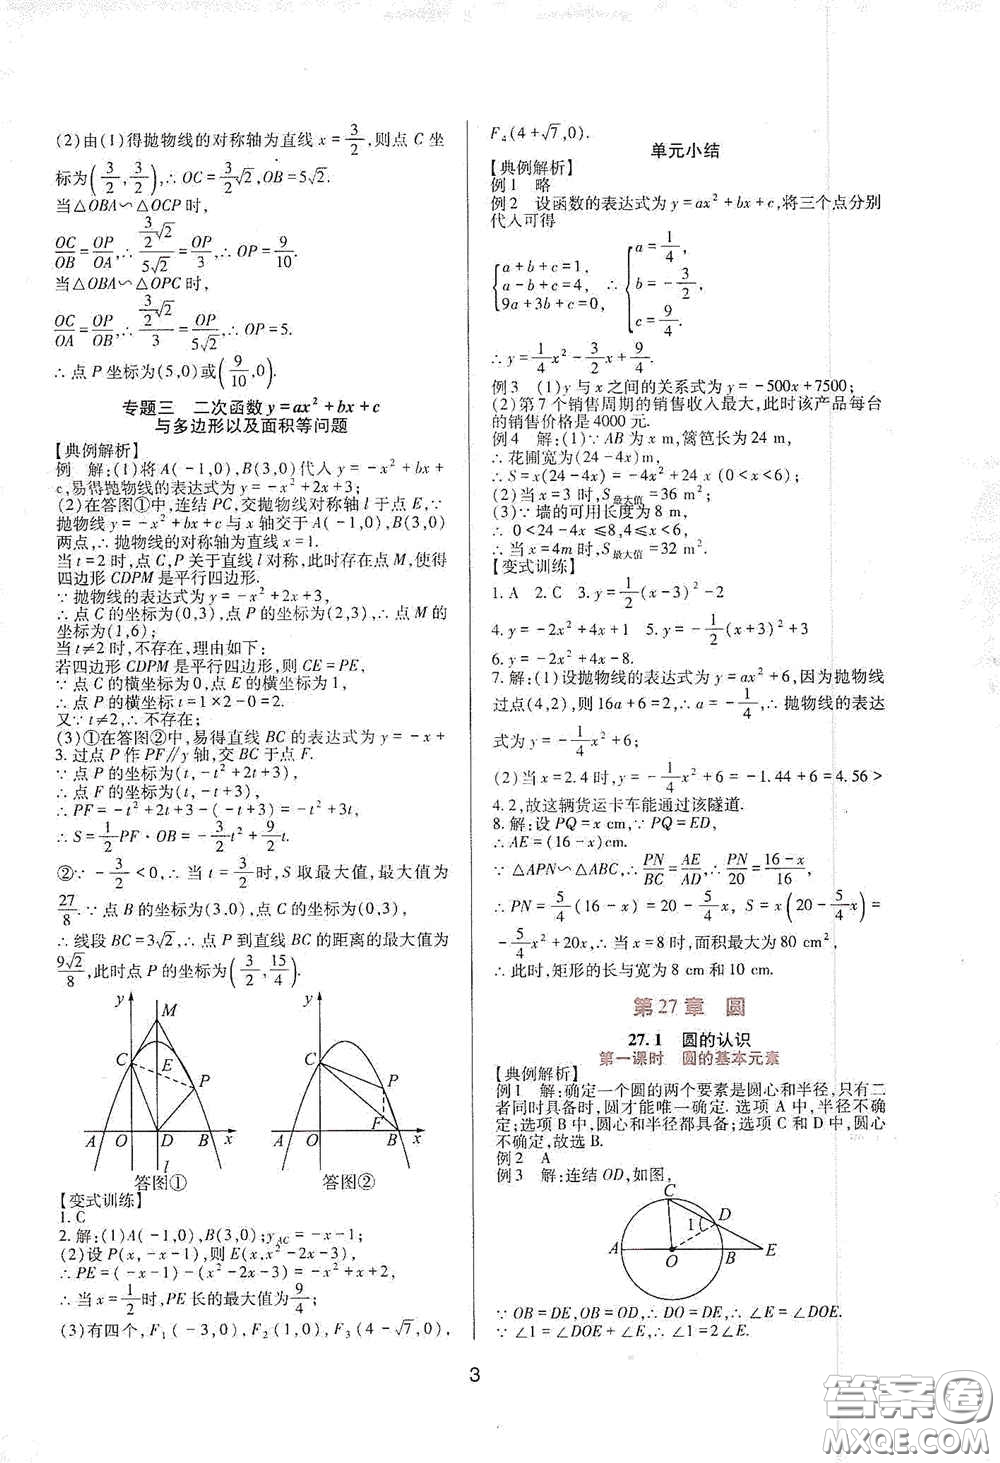 (2)由(1)得抛物线的对称轴为直线 x = 3/2, 则点 C 坐
标为(3/2, 3/2), ∴ OC = 3/2√2, OB = 5√2.
当△OBA∽△OCP 时,
OC/OB = OP/OA, ∴ (3/2√2)/(5√2) = OP/3, ∴ OP = 9/10.
当△OBA∽△OPC 时,
OC/OA = OP/OB, ∴ (3/2√2)/3 = OP/(5√2), ∴ OP = 5.
∴ 点 P 坐标为(5,0)或(9/10, 0).
专题三 二次函数 y = ax² + bx + c
与多边形以及面积等问题
【典例解析】
例 解:(1)将 A(-1,0), B(3,0)代入 y = -x² + bx +
c,易得抛物线的表达式为 y = -x² + 2x + 3;
(2)在答图①中,连结 PC,交抛物线对称轴 l 于点 E, ∵
抛物线 y = -x² + bx + c 与 x 轴交于 A(-1,0), B(3,0)
两点, ∴ 抛物线的对称轴为直线 x = 1.
当 t = 2 时,点 C,P 关于直线 l 对称,此时存在点 M,使得
四边形 CDPM 是平行四边形.
∵ 抛物线的表达式为 y = -x² + 2x + 3,
∴ 点 C 的坐标为(0,3),点 P 的坐标为(2,3), ∴ 点 M 的
坐标为(1,6);
当 t≠2 时,不存在,理由如下:
若四边形 CDPM 是平行四边形,则 CE = PE,
∵ 点 C 的横坐标为0,点 E 的横坐标为1,
∴ 点 P 的横坐标 t = 1×2 - 0 = 2.
又∵ t≠2, ∴ 不存在;
(3)①在答图②中,易得直线 BC 的表达式为 y = -x +
3. 过点 P 作 PF∥y 轴,交 BC 于点 F.
∵ 点 P 的坐标为(t, -t² + 2t + 3),
∴ 点 F 的坐标为(t, -t + 3),
∴ PF = -t² + 2t + 3 - (-t + 3) = -t² + 3t,
∴ S = 1/2 PF · OB = -3/2 t² + 9/2 t.
②∵ -3/2 < 0, ∴ 当 t = 3/2 时, S 取最大值,最大值为
27/8. ∵ 点 B 的坐标为(3,0),点 C 的坐标为(0,3),
∴ 线段 BC = 3√2, ∴ 点 P 到直线 BC 的距离的最大值为
9√2/8,此时点 P 的坐标为(3/2, 15/4).
y M C E P A O D B x l
答图①
y C P F A O B x
答图②
【变式训练】
1. C
2. 解:(1)A(-1,0), B(3,0); y_AC = -x - 1;
(2)设 P(x, -x - 1),则 E(x, x² - 2x - 3),
∴ PE = (-x - 1) - (x² - 2x - 3) = -x² + x + 2,
∴ 当 x = 1/2 时, PE 长的最大值为 9/4;
(3)有四个, F₁(-3,0), F₂(1,0), F₃(4 - √7,0),
F₄(4 + √7,0).
单元小结
【典例解析】
例1 略
例2 设函数的表达式为 y = ax² + bx + c,将三个点分别
代入可得
{a + b + c = 1, a - b + c = 4, 9a + 3b + c = 0, ∴ {a = 1/4, b = -3/2, c = 9/4.
∴ y = 1/4 x² - 3/2 x + 9/4.
例3 (1)y 与 x 之间的关系式为 y = -500x + 7500;
(2)第7个销售周期的销售收入最大,此时该产品每台
的销售价格是4000元.
例4 解:(1)∵ AB 为 x m,篱笆长为24 m,
∴ 花圃宽为(24 - 4x)m.
∴ S = x(24 - 4x) = -4x² + 24x (0 < x < 6);
(2)当 x = 3 时, S最大值 = 36 m²;
(3)∵ 墙的可用长度为8 m,
∴ 0 < 24 - 4x ≤ 8, 4 ≤ x < 6.
∴ 当 x = 4m 时, S最大值 = 32 m².
【变式训练】
1. A 2. C 3. y = 1/2 (x - 3)² - 2
4. y = -2x² + 4x + 1 5. y = -1/2 (x + 3)² + 3
6. y = -2x² + 4x - 8.
7. 解:(1)设抛物线的表达式为 y = ax² + 6,因为抛物线
过点(4,2),则 16a + 6 = 2, ∴ a = -1/4, ∴ 抛物线的表达
式为 y = -1/4 x² + 6;
(2)当 x = 2.4 时, y = -1/4 x² + 6 = -1.44 + 6 = 4.56 >
4.2,故这辆货运卡车能通过该隧道.
8. 解:设 PQ = x cm, ∵ PQ = ED,
∴ AE = (16 - x)cm.
∵ △APN∽△ABC, ∴ PN/BC = AE/AD, ∴ PN/20 = (16 - x)/16,
∴ PN = 5/4 (16 - x) = 20 - 5/4 x, ∴ S = x(20 - 5/4 x) =
-5/4 x² + 20x, ∴ 当 x = 8 时,面积最大为80 cm²,
∴ 此时,矩形的长与宽为8 cm和10 cm.
第27章 圆
27.1 圆的认识
第一课时 圆的基本元素
【典例解析】
例1 解:确定一个圆的两个要素是圆心和半径,只有二
者同时具备时,圆才能唯一确定.选项A中,半径不确
定;选项B中,圆心和半径都具备;选项C和D中,圆心
不确定,故选B.
例2 A
例3 解:连结 OD,如图,
C D 1 A O B E
∵ OB = DE, OB = OD, ∴ DO = DE, ∴ ∠E = ∠DOE.
∵ ∠1 = ∠DOE + ∠E, ∴ ∠1 = 2∠E.
3
答案圈
MXQE.COM